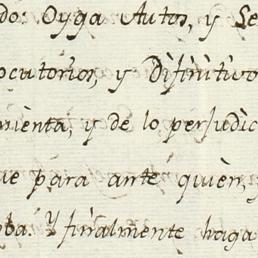 do: Oyga Autos, y Se
ocutorios, y Difinitivo
rienta, y de lo perjudic
ue para ante quien,
ba: Y finalmente haga